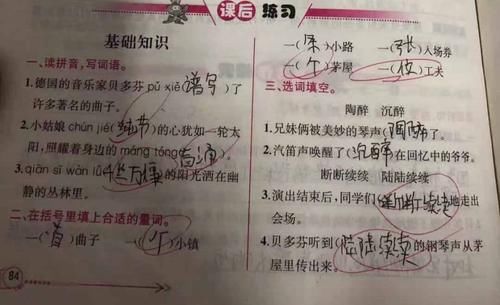 课后 练习
基础知识
一、读拼音,写词语。
1.德国的音乐家贝多芬 pǔ xiě(谱写)了
许多著名的曲子。
2.小姑娘 chún jié(纯节)的心犹如一轮太
阳,照耀着身边的 máng tóng(盲)。
3.qiān sī wàn lǚ(千丝万缕)的阳光洒在幽
静的丛林里。
二、在括号里填上合适的量词。
一(首)曲子 一(个)小镇
84
一(条)小路 一(张)入场券
一(个)茅屋 一()工夫
三、选词填空。
陶醉 沉醉
1.兄妹俩被美妙的琴声(陶醉)了。
2.汽笛声唤醒了(沉醉)在回忆中的爷爷。
断断续续 陆陆续续
3.演出结束后,同学们(断断续续)地走出
会场。
4.贝多芬听到(陆陆续续)的钢琴声从茅
屋里传出来。